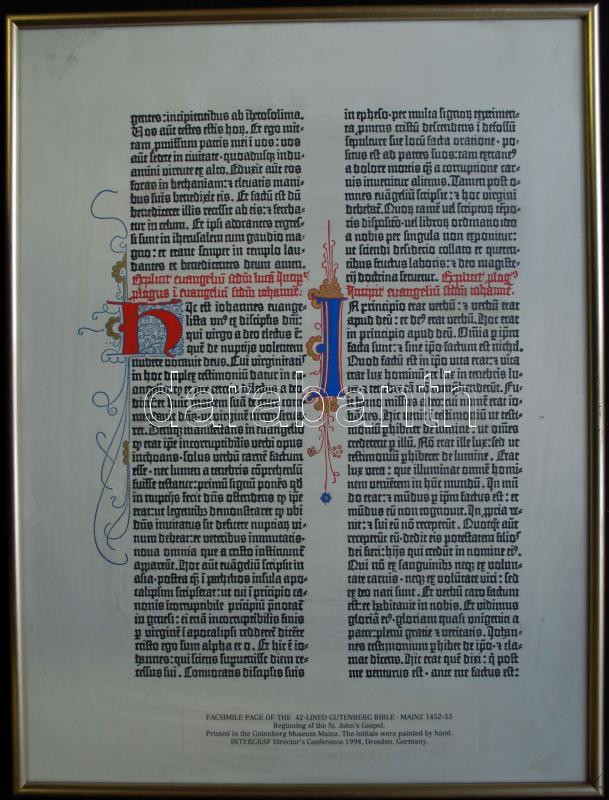 gentes: incipientibus ab iherosolima.
Vos aūt testes estis horꝫ. Et ego mit-
tam ꝓmissum patris mei ī vos: vos
aūt sedete in ciuitate · quoadusqꝫ indu-
amini virtute ex alto. Eduxit aūt eos
foras in bethaniam: ⁊ eleuatis mani-
bus suis benedixit eis. Et factū est dū
benedic̄eret illis recessit ab eis: ⁊ fereba-
tur in celum. Et ipsi adorantes regres-
si sunt in iherusalem cum gaudio ma-
gno: et erant semper in templo lau-
dantes et benedicentes deum amen.
Explicit euangeliū scdm lucā
ī euangeliū scdm iohannē.
Hic est iohannes euange-
lista unꝰ ex discipulis dn̄i:
qui virgo a deo electus ē:
quē de nuptijs volentem
nubere vocauit deus. Cui virginitati
in hoc duplex testimoniū datur in eu-
ētis in euangelio
qꝫ erat ipse incorruptibilis verbi opus
inchoans · solus verbū carnē factum
esse · nec lumen a tenebris cōprehensū
fuisse testatur: primū signū ponēs qd̄
in nuptijs fecit dn̄s ostendens qꝫ ip̄e
erat: ut legentibꝫ demonstraret qꝫ ubi
dn̄s inuitatus sit deficere nuptiarꝫ vi-
num debeat: et veteribus immutatis ·
noua omnia que a cristo instituunt̄
appareāt. Hoc aut euāgeliū scripsit in
asia · postea qꝫ ī pathmos insula apo-
calipsim scripserat: ut cui ī prīcipio ca-
nonis īcorruptibile prīcipiū p̄notat̄
in genesi: ei etiā incorruptibilis finis
ꝑ virginē ī apocalipsi redderet̄ dicēte
cristo ego sum alpha et o. Et hic ē io-
hannes: qui sciens supuenisse diem re-
cessus sui. Conuocatis discipulis suis
in epheso · per multa signorꝫ experimen-
ta ꝓmens cristū descendens ī defossū
sepulture sue locū facta oratione · po-
situs est ad patres suos: tam extraneꝰ
a dolore mortis qꝫ a corruptione car-
nis inuenitur alienus. Tamen post o-
mnes euāgeliū scripsit: ⁊ hoc virgini
debebat̄. Quorꝫ tamē vel scriptorꝫ tēpo-
ris dispositō · vel librorꝫ ordinatō ideo
a nobis per singula non exponitur:
ut sciendi desiderio collato et queren-
tibus fructus laboris: ⁊ deo magiste-
rij doctrina seruetur. Explicit plogꝰ
Incipit euangeliū scdm iohannē.
In principio erat verbū: ⁊ verbū erat
apud deū: et deꝰ erat verbū. Hoc erat
in principio apud deū. Omīa ꝑ ip̄m
facta sunt: ⁊ sine ip̄o factum est nichil.
Quod factū est in ip̄o vita erat: ⁊ vita
erat lux hominū: et lux in tenebris lu-
hānes. Hic venit ī testimoniū ut testi-
moniū ꝑhiberet de lumine · ut omēs
crederent ꝑ illū. Nō erat ille lux: sed ut
testimoniū ꝑhiberet de lumine. Erat
lux vera: que illuminat omnē homi-
nem venientem in hūc mundū. In mū-
do erat: ⁊ mūdus ꝑ ip̄m factus est: et
mūdus eū non cognouit. In ꝓpria ve-
nit: ⁊ sui eū nō receperūt. Quotqꝫ aūt
receperūt eū · dedit eis potestatem filios
dei fieri: hijs qui credūt in nomine eiꝰ.
Qui nō ex sanguinibꝫ neqꝫ ex volun-
tate carnis · neqꝫ ex volūtate viri: sed
ex deo nati sunt. Et verbū caro factum
est: et habitauit in nobis. Et vidimus
gloriā eiꝰ · gloriam quasi unigeniti a
patre: plenū gratie ⁊ veritatis. Iohan-
nes testimonium ꝑhibet de ip̄o · ⁊ cla-
mat dicens. Hic erat quē dixi: q̄ post
me venturus est · ante me factus est:
databanth
FACSIMILE PAGE OF THE 42-LINED GUTENBERG BIBLE - MAINZ 1452-55
Beginning of the St. John's Gospel.
Printed in the Gutenberg Museum Mainz. The initials were painted by hand.
INTERGRAF Director's Conference 1998, Dresden, Germany.